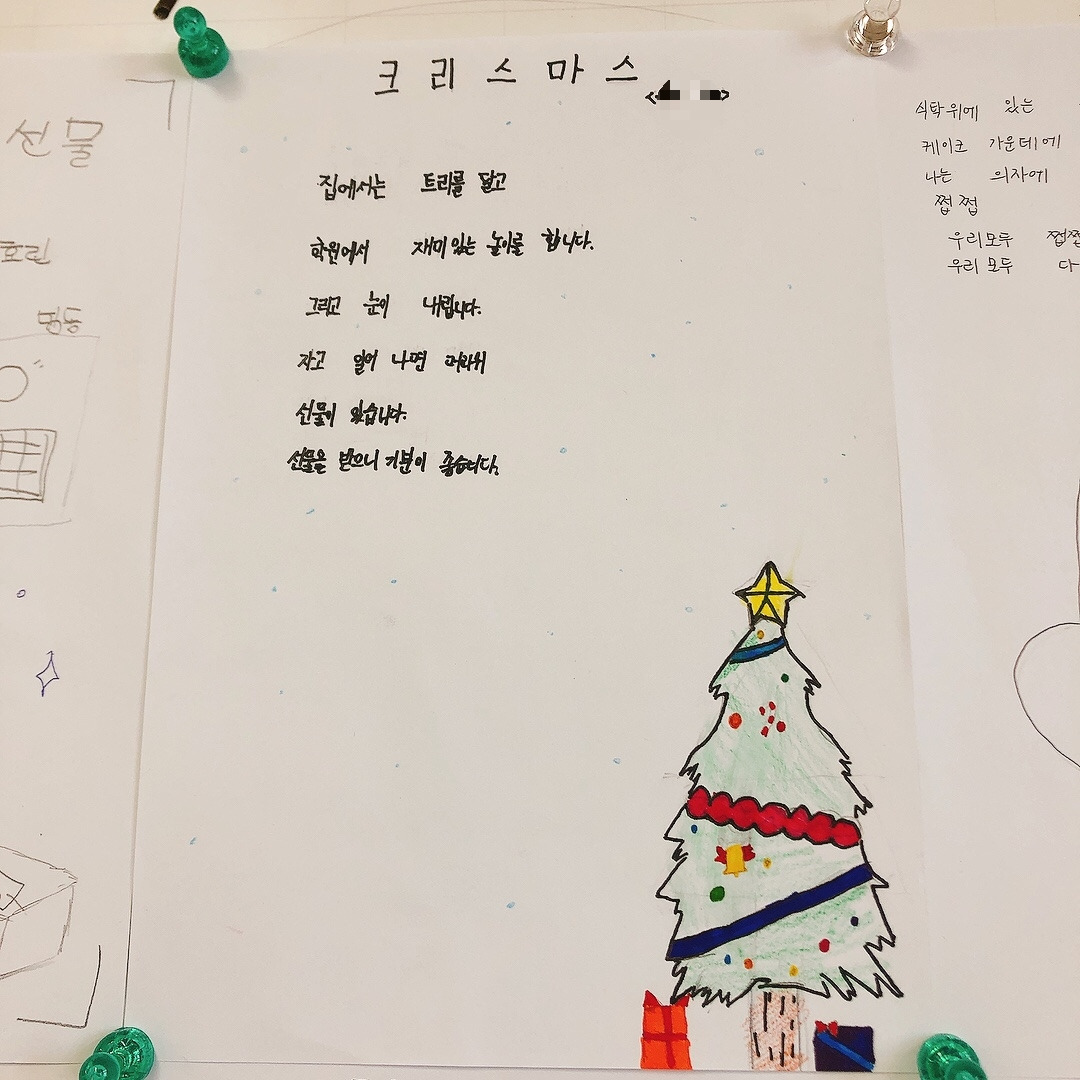 선물
효린
명동
크리스마스
집에서는 트리를 달고
학원에서 재미있는 놀이를 합니다.
그리고 눈이 내립니다.
자고 일어 나면 머리위
선물이 있습니다.
선물을 받으니 기분이 좋습니다.
식탁위에 있는
케이크 가운데에
나는 의자에
쩝쩝
우리모두 쩝쩝
우리 모두 다